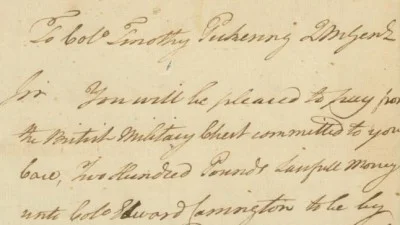 To Colo. Timothy Pickering QMGenl.
Sir You will be pleased to pay from
the British Military Chest committed to your
Care, Two Hundred Pounds Lawfull Money
unto Colo. Edward Carrington to be by